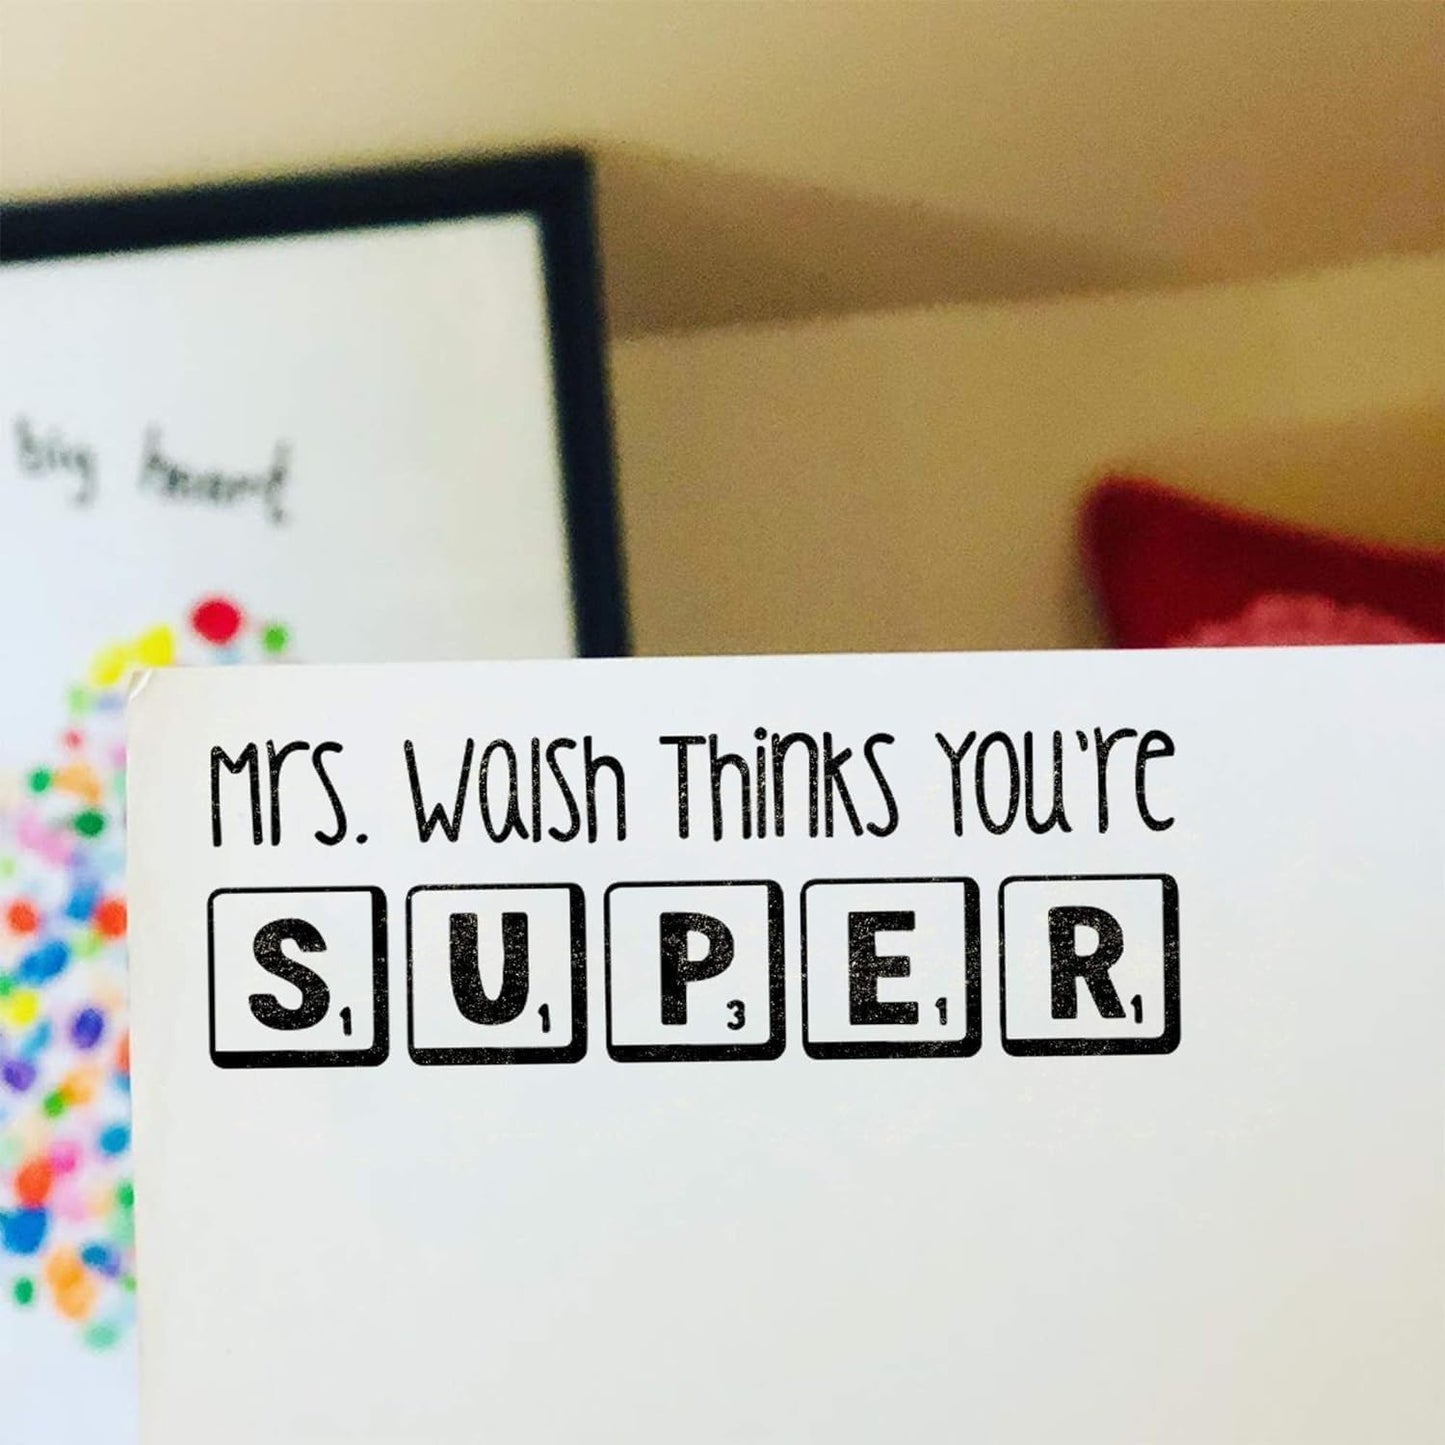 big heart
Mrs. Walsh Thinks You're
S1 U1 P3 E1 R1